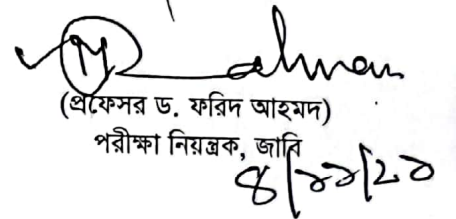 (প্রফেসর ড. ফরিদ আহমদ)
পরীক্ষা নিয়ন্ত্রক, জাবি
৪/১১/২১